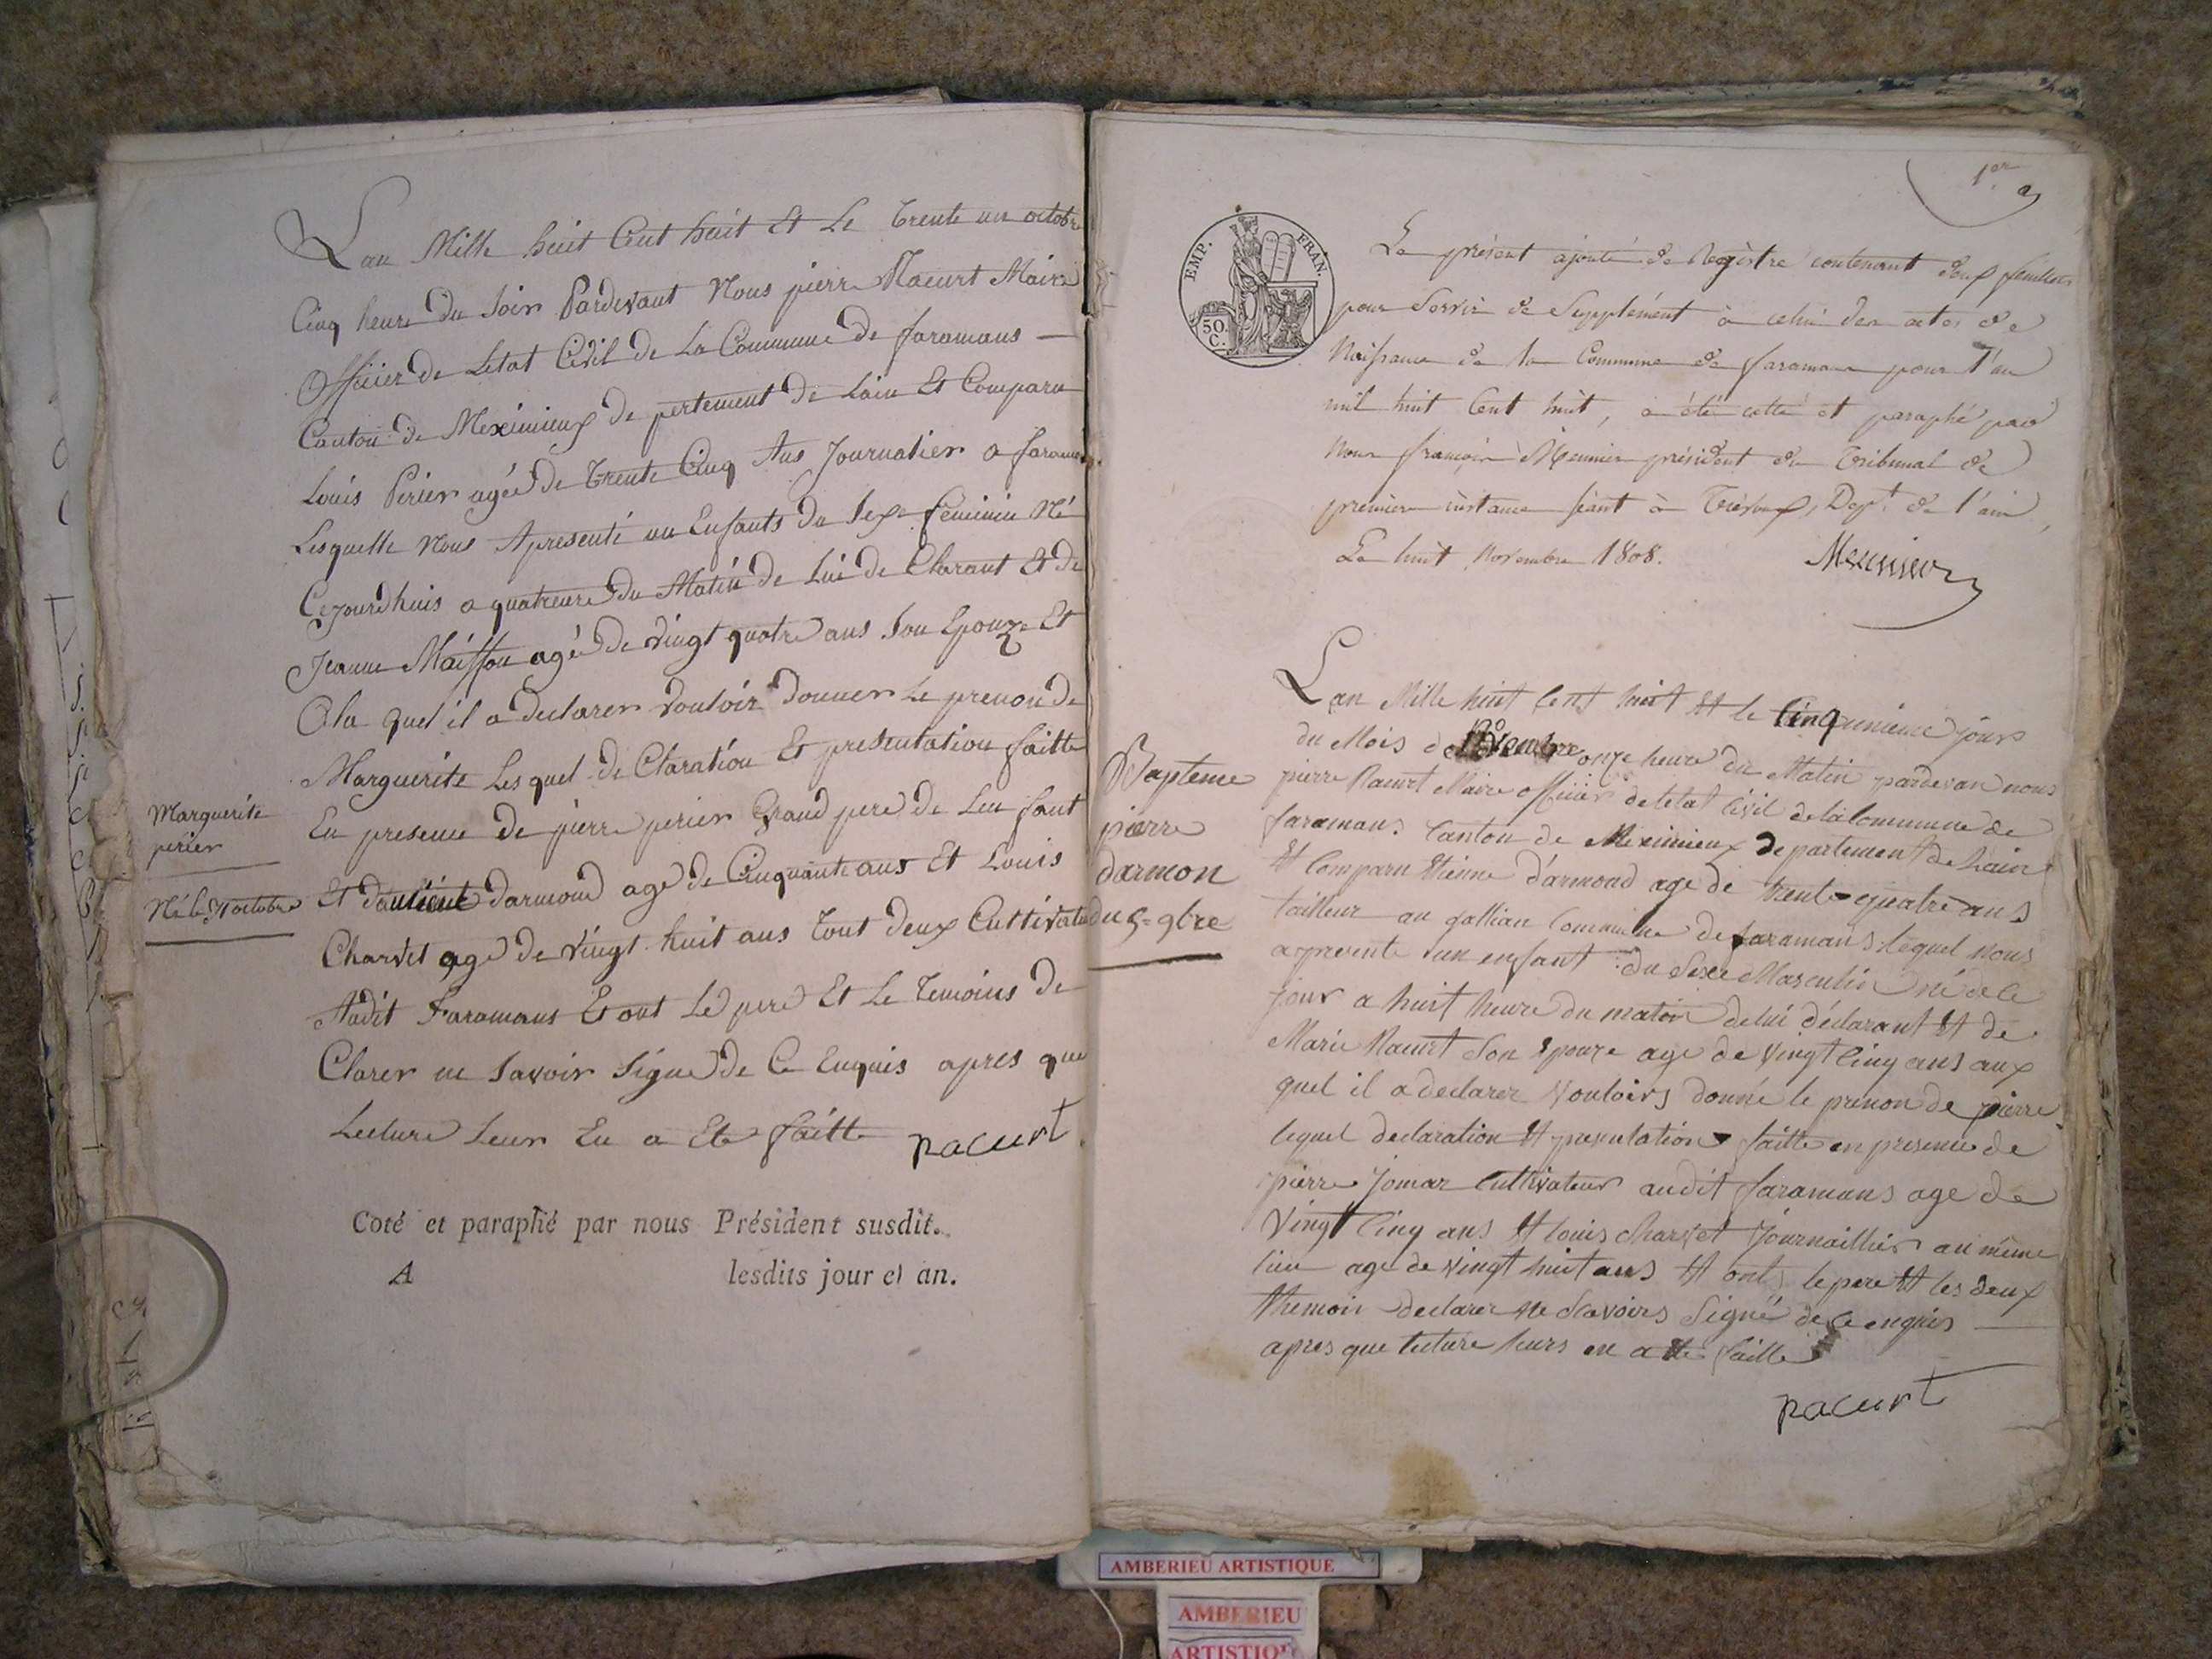 Lan Mille huit Cent huit Et Le Trente un octobre
Cinq heure Du Soir Pardevant Nous pierre Pacurt Maire
Officier de Letat Civil de La Commune de faramans
Canton de Meximieux de partement de Lain Et Comparu
Louis Perier agée De Trente Cinq Ans Journalier a faramans
Lesquelle Nous Apresenté un Enfants du Sexe feminin Né
Cejourdhuis a quatreure du Matin de Lui de Clarant Et de
Jeanne Maisson agé De Vingt quatre ans Son Epouze Et
Ala quel il a declarer Vouloir Donner Le prenon de
Marguerite Les quel de Claration Et presentation faitte
Marguerite
perier
En presence de pierre perier Grand pere de Len fant
Né le 31 octobre
Et darmond age de Cinquante ans Et Louis
Charvet age de Vingt huit ans Tout Deux Cultivateur
Audit Faramans Et ont Le pere Et Le Temoins De
Clarer ne Savoir Signe de Ce Enquis apres que
Lecture Leur En a Ete faitte pacurt
Coté et paraphé par nous Président susdit.
A lesdits jour et an.
1er
EMP. FRAN.
50 C.
Le présent ajouté de Registre contenant deux feuillets
pour Servir de Supplément à celui des actes de
Naissance de la Commune de faramans pour l'an
mil huit Cent huit, a été cotté et paraphé par
Nous françois Meunier président du Tribunal de
première instance séant à Trévoux, Dept. de l'ain,
Le huit Novembre 1808. Meunier
Lan Mille huit Cent huit Et le Cinqunieme jour
du Mois de Novembre onze heure du Matin pardevan nous
pierre Pacurt Maire officier de letat Civil de la Commune de
faramans Canton de Meximieux Departement de Lain
Et Comparu Etienne d'armond age de trente quatre ans
tailleur au gallian Commune de faramans lequel nous
apresente un enfant du Sexe Masculin né de ce
jour a huit heure du matin de lui déclarant Et de
Marie Pacurt Son Epouze age de Vingt Cinq ans aux
quel il a declarer Vouloirs donné le prenon de pierre
lequel declaration Et presentation faitte en presence de
pierre Jomar Cultivateur audit faramans age de
Vingt Cinq ans Et louis Charvet Journaillier au même
lieu age de Vingt huit ans Et ont le pere Et les deux
themoin declarer ne Scavoirs Signé de Ce enquis
apres que lecture leurs en a Ete faitte
pacurt
Bapteme
pierre
darmon
du 5e 9bre
AMBERIEU ARTISTIQUE
AMBERIEU